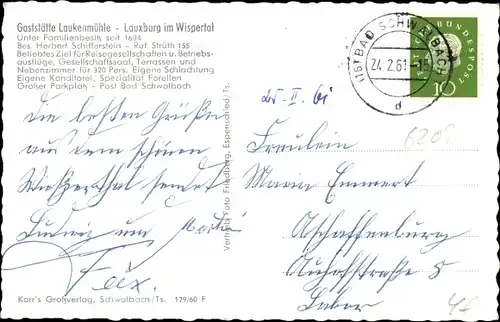 Gaststätte Laukenmühle - Lauxburg im Wispertal
Unter Familienbesitz seit 1604
Bes. Herbert Schifferstein - Ruf Strüth 155
Beliebtes Ziel für Reisegesellschaften u. Betriebs-
ausflüge, Gesellschaftssaal, Terrassen und
Nebenzimmer für 320 Pers. Eigene Schlachtung
Eigene Konditorei, Spezialität Forellen
Großer Parkplatz - Post Bad Schwalbach
(16) BAD SCHWALBACH
24.2.61
d
BUNDESPOST
10
6208
Die besten Grüße
aus dem schönen
sendet
Ludwig und
Felix.
Vertrieb: Foto Friedberg, Espenschied/Ts.
Fräulein
Maria Emmert
Aschaffenburg
5
Labor
Korr's Großverlag, Schwalbach/Ts. 129/60 F